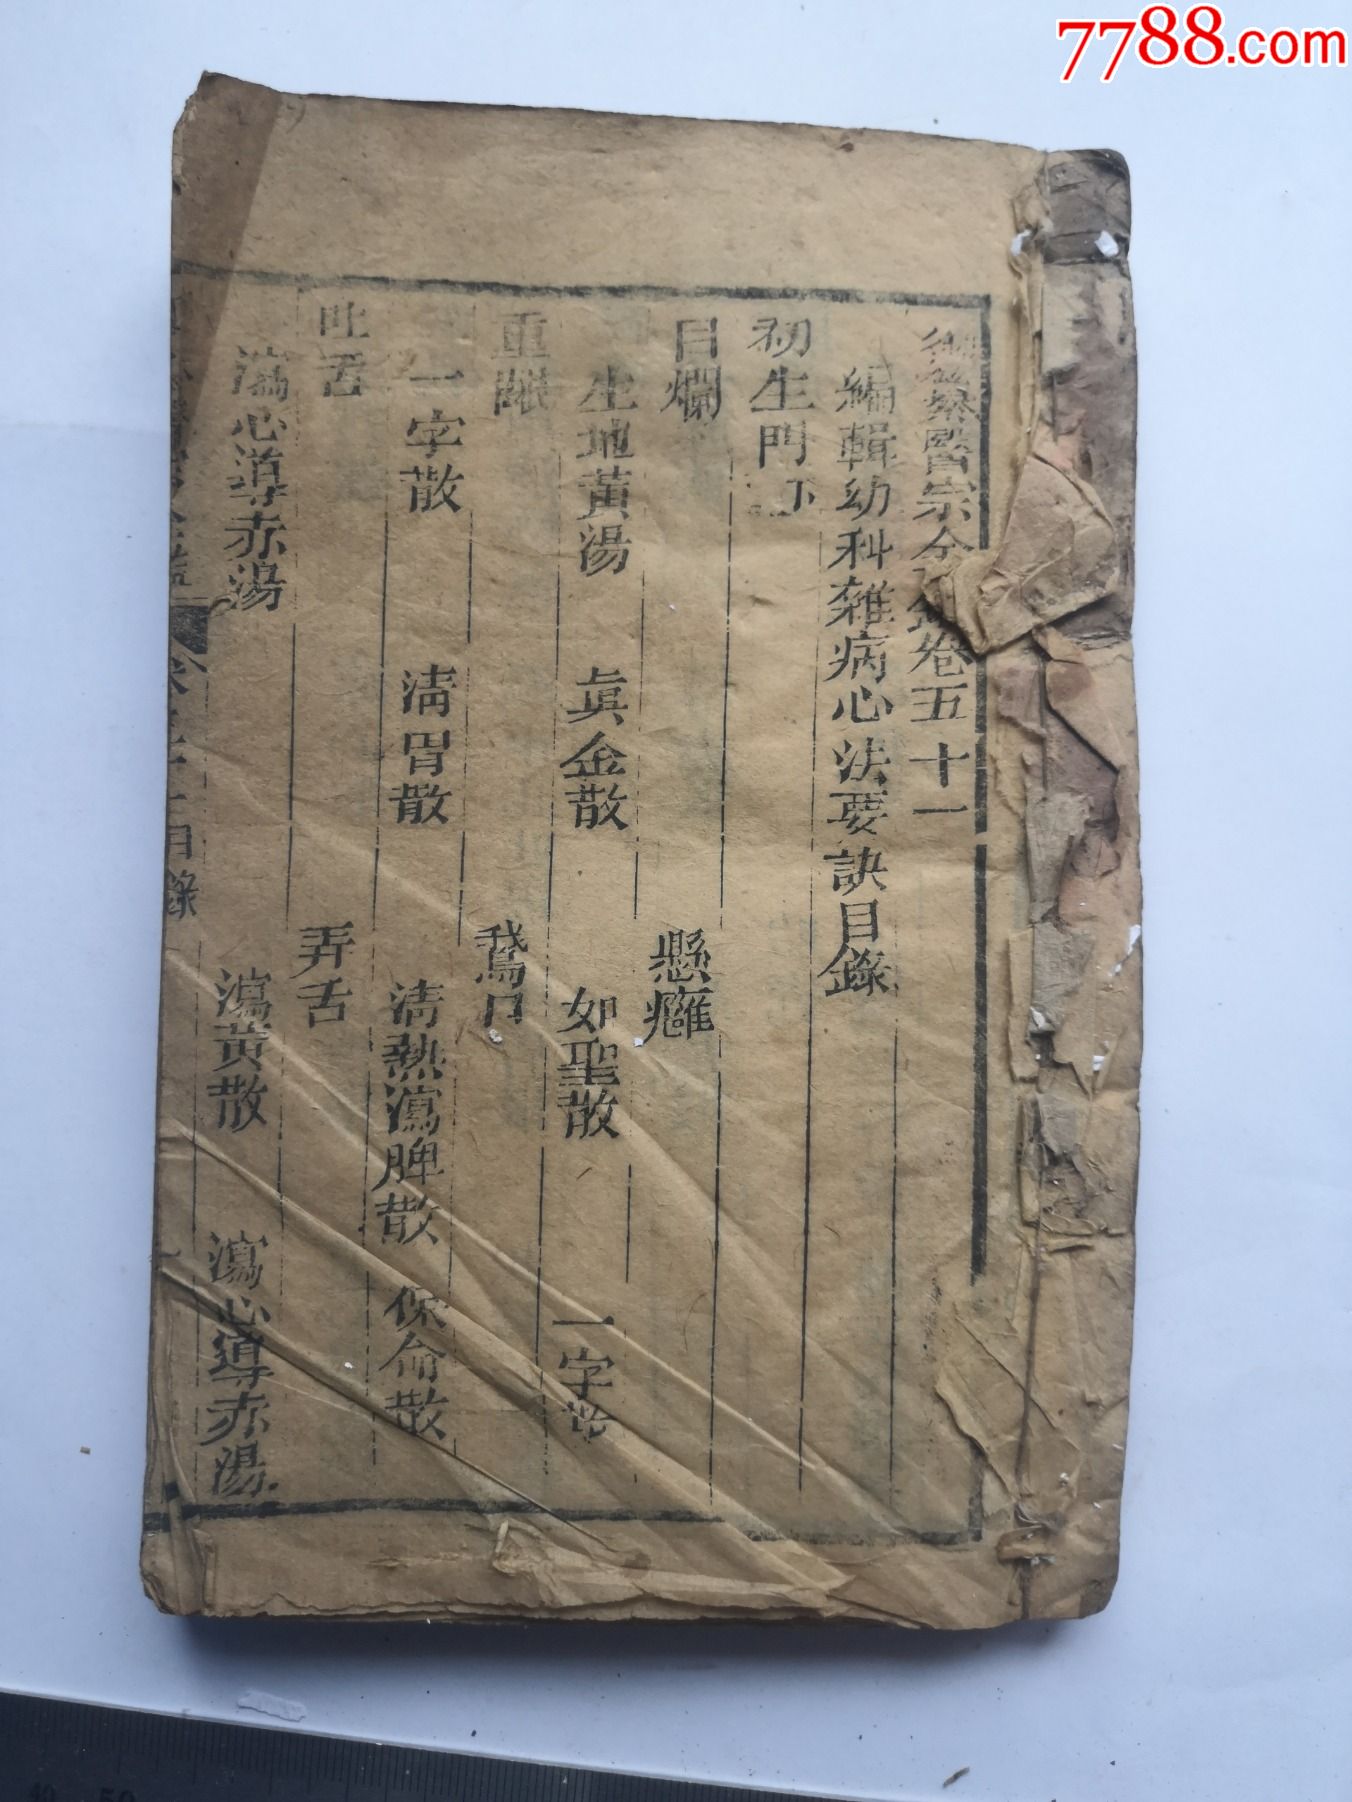 7788.com
御纂醫宗金鑑卷五十一
編輯幼科雜病心法要訣目錄
初生門下
目爛
懸癰
生地黃湯
真金散
如聖散
一字散
重齦
鵞口
一字散
清胃散
清熱瀉脾散
保命散
吐舌
弄舌
瀉心導赤湯
瀉黃散
瀉心導赤湯
卷五十一目錄